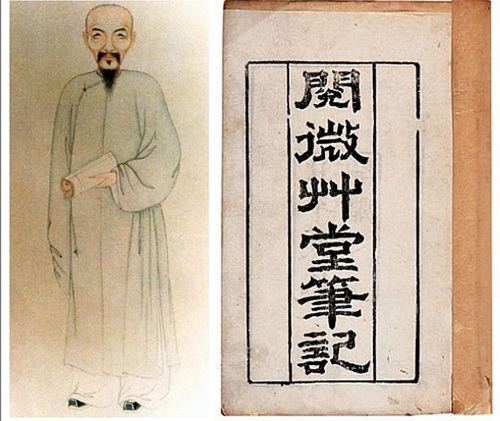 閱微艸堂筆記